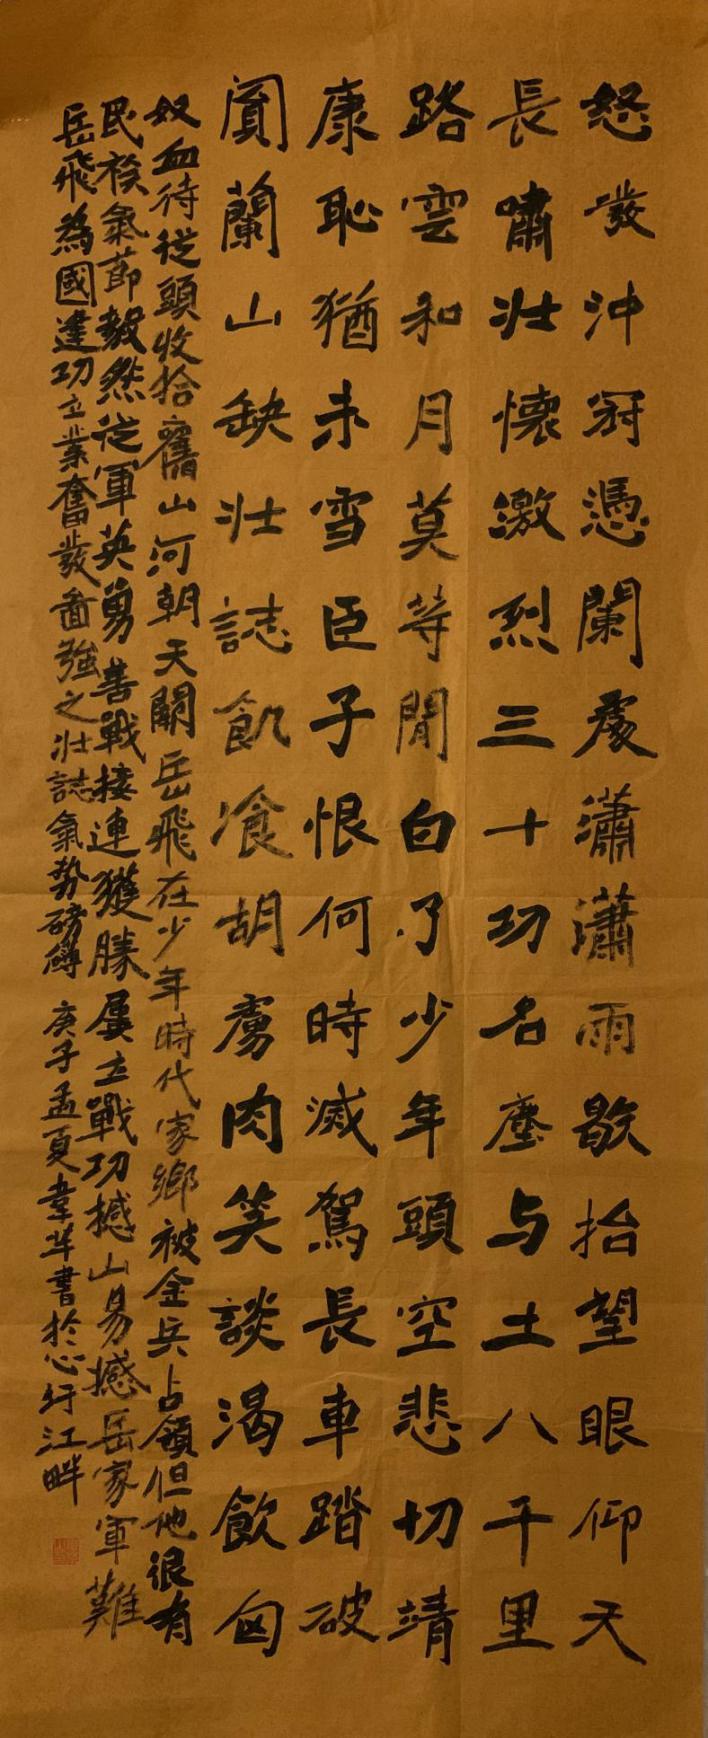 怒發沖冠憑闌處瀟瀟雨歇抬望眼仰天
長嘯壯懷激烈三十功名塵与土八千里
路雲和月莫等閒白了少年頭空悲切靖
康恥猶未雪臣子恨何時滅駕長車踏破
賀蘭山缺壯誌飢飡胡虜肉笑談渴飲匈
奴血待從頭收拾舊山河朝天闕岳飛在少年時代家鄉被金兵占領但他很有
民族氣節毅然從軍英勇善戰接連獲勝屢立戰功撼山易撼岳家軍難
岳飛為國建功立業奮發啚強之壯誌氣勢磅礴 庚子孟夏韋 書於心圩江畔